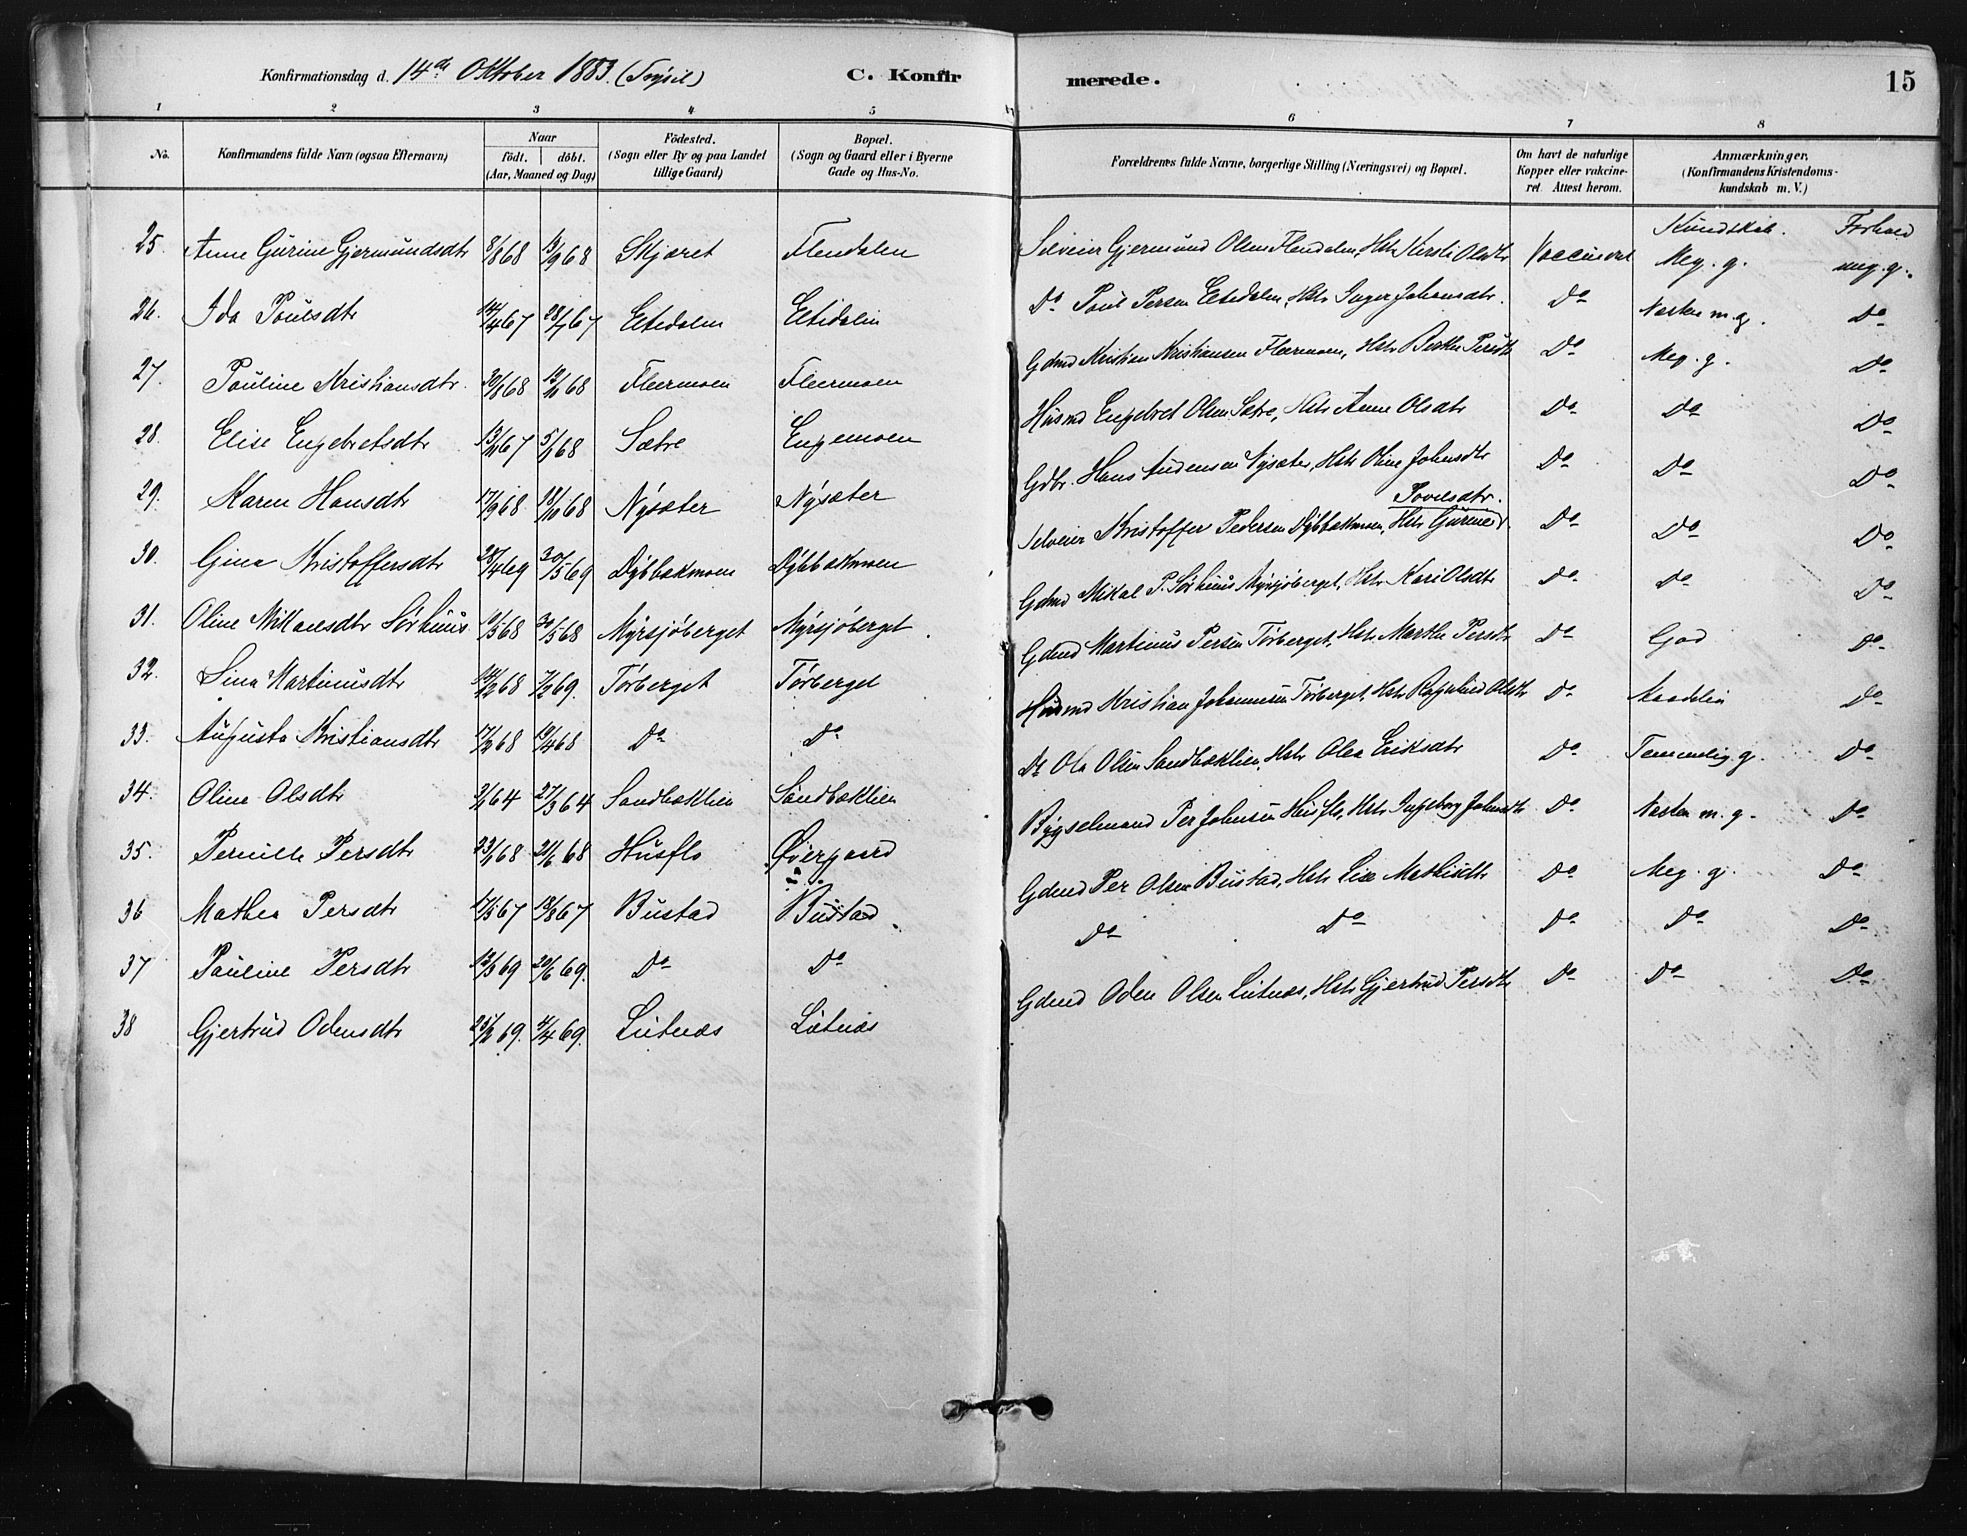 Konfirmationsdag d. 14de Oktober 1883. (Trysil) C. Konfirmerede. 15
1 2 3 4 5 6 7 8
No. Konfirmandens fulde Navn (ogsaa Efternavn) Naar födt. döbt. (Aar, Maaned og Dag) Födested. (Sogn eller By og paa Landet tillige Gaard) Bopæl. (Sogn og Gaard eller i Byerne Gade og Hus-No. Forældrenes fulde Navne, borgerlige Stilling (Næringsvei) og Bopæl. Om havt de naturlige Kopper eller vakcineret. Attest herom. Anmærkninger, (Konfirmandens Kristendomskundskab m. V.)
Kundskab. Forhold
25. Anne Gurine Gjermundsdtr 8/8 68 13/9 68 Skjæret Flendalen Selveier Gjermund Olsen Flendalen, Hstr Kersti Olsdtr Vaccineret Meg. g. meg. g.
26. Ida Poulsdtr 14/4 67 28/7 67 Eltedalen Eltedalen Do Poul Persen Eltedalen, Hstr Inger Johansdtr. Do Næsten m. g. Do
27. Pauline Kristiansdtr. 30/8 68 18/10 68 Fleermoen Fleermoen Gdmd Kristian Kristiansen Fleermoen, Hstr Berthe Persdtr Do Meg. g. Do
28. Elise Engebretsdtr 13/11 67 5/1 68 Sætre Engemoen Husmd Engebret Olsen Sætre, Hstr Anne Olsdtr Do Do Do
29. Karen Hansdtr 17/9 68 18/10 68 Nysæter Nysæter Gdbr. Hans Andersen Nysæter, Hstr Oline Johnsdtr Do Do Do
30. Gina Kristoffersdtr 28/4 69 30/5 69 Dybbækmoen Dybbækmoen Selveier Kristoffer Pedersen Dybbækmoen, Hstr Gurine Povelsdtr. Do Do Do
31. Oline Mikaelsdtr Sørhuus 10/5 68 31/5 68 Myrsjöberget Myrsjöberget Gdmd Mikal P. Sørhuus Myrsjöberget, Hstr Kari Olsdtr Do Do Do
32. Lina Martinusdtr 14/12 68 7/2 69. Törberget Törberget Gdmd Martinus Persen Törberget, Hstr Marthe Persdtr Do God Do
33. Augusta Kristiansdtr 17/2 68 19/4 68 Do Do Husmd Kristian Johannesen Törberget, Hstr Ragnhild Olsdtr Do Do
34. Oline Olsdtr 3/1 64 27/3 64 Sandbæklien Sandbæklien Do Ola Olsen Sandbæklien, Hstr Olea Eriksdtr Do Temmelig g. Do
35. Pernille Persdtr 23/1 68 21/6 68 Husflo Øvergaard Bygselmand Per Johnsen Husflo, Hstr Ingeborg Johnsdtr Do Næsten m. g. Do
36 Mathea Persdtr 17/5 67 18/8 67 Bustad Bustad Gdmd Per Olsen Bustad, Hstr Lise Mathisdtr Do Meg. g. Do
37 Pauline Persdtr 13/3 69 20/6 69. Do Do Do Do Do Do Do
38 Gjertrud Odensdtr 25/2 69. 4/4 69. Lutnæs Lutnæs Gdmd Oden Olsen Lutnæs, Hstr Gjertrud Persdtr Do Do Do